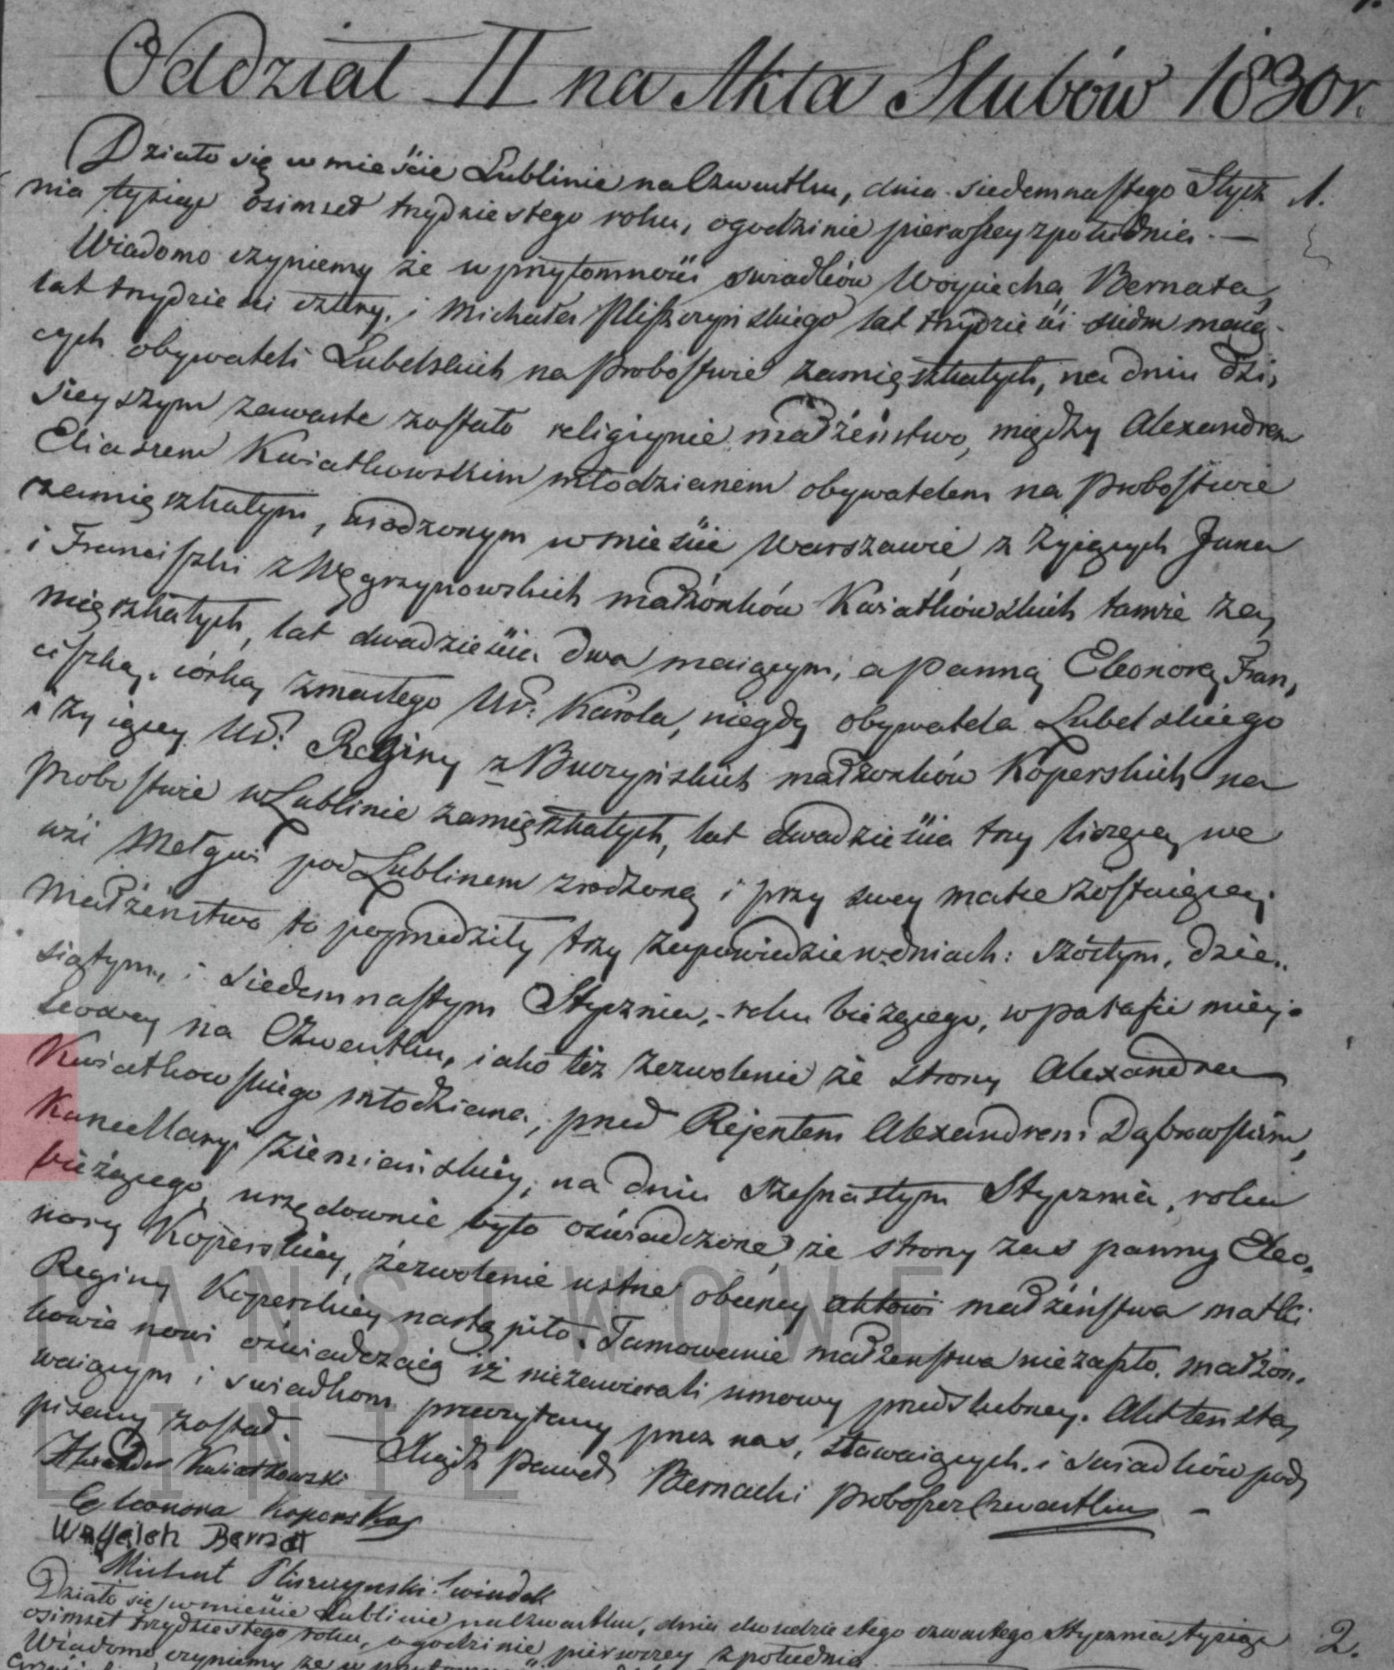 Oddział II na Akta Slubów 1830r.
Działo się w mieście Lublinie na Czwartku, dnia siedemnastego Stycz 1.
nia tysiąc osimset trzydziestego roku, o godzinie pierwszey z południa. —
Wiadomo czyniemy że w przytomności swiadków Woyciecha Bernata,
lat trzydzieści cztery, i Michała Pliszczyńskiego lat trzydzieści siedm maią-
cych obywateli Lubelskich na Probostwie zamięszkałych, na dniu dzi,
sieyszym zawarte zostało religiynie małżeństwo, między Alexandrem
Eliaszem Kwiatkowskim młodzianem obywatelem na Probostwie
zamięszkałym, urodzonym w mieście Warszawie, z żyiących Jana
i Franciszki z Węgrzynowskich małżonków Kwiatkowskich tamże za,
mięszkałych, lat dwadzieścia dwa maiącym; a Panną Eleonorą Fran,
ciszką, córką zmarłego Ur: Karola, niegdy obywatela Lubelskiego
i żyiącey Ur: Reginy z Buczyńskich małżonków Koperskich na
Probostwie w Lublinie zamięszkałych, lat dwadzieścia trzy liczącą we
wsi Mełgwi pod Lublinem zrodzoną i przy swey matce zostaiącą.
Małżeństwo to poprzedziły trzy zapowiedzie w dniach: szóstym, dzie..
siątym, i siedemnastym Stycznia, roku bieżącego, w parafii miey-
scowey na Czwartku, iako też zezwolenie ze strony Alexandra
Kwiatkowskiego młodziana, przed Rejentem Alexandrem Dąbrowskim,
Kancellaryi Ziemiańskiey, na dniu szesnastym Stycznia, roku
bieżącego, urzędownie było oświadczone, ze strony zas panny Eleo,
nory Koperskiey, zezwolenie ustne obecney aktowi małżeństwa matki
Reginy Koperskiey nastąpiło. Tamowanie małżeństwa nie zaszło. Małżon,
kowie nowi oświadczaią iż nie zawierali umowy przedslubney. Akt ten sta,
waiącym i swiadkom przeczytany przez nas, stawaiących i swiadków pod,
pisany został. — Xiądz Paweł Bernacki Proboszcz Czwartku —
Alexander Kwiatkowski
Eleonora Koperska
Woyciech Bernat
Michał Pliszczynski Swiadek
Działo się w mieście Lublinie na Czwartku, dnia dwudziestego czwartego Stycznia, tysiąc 2.
osimset trzydziestego roku, o godzinie pierwszey z południa.
Wiadomo czyniemy że w